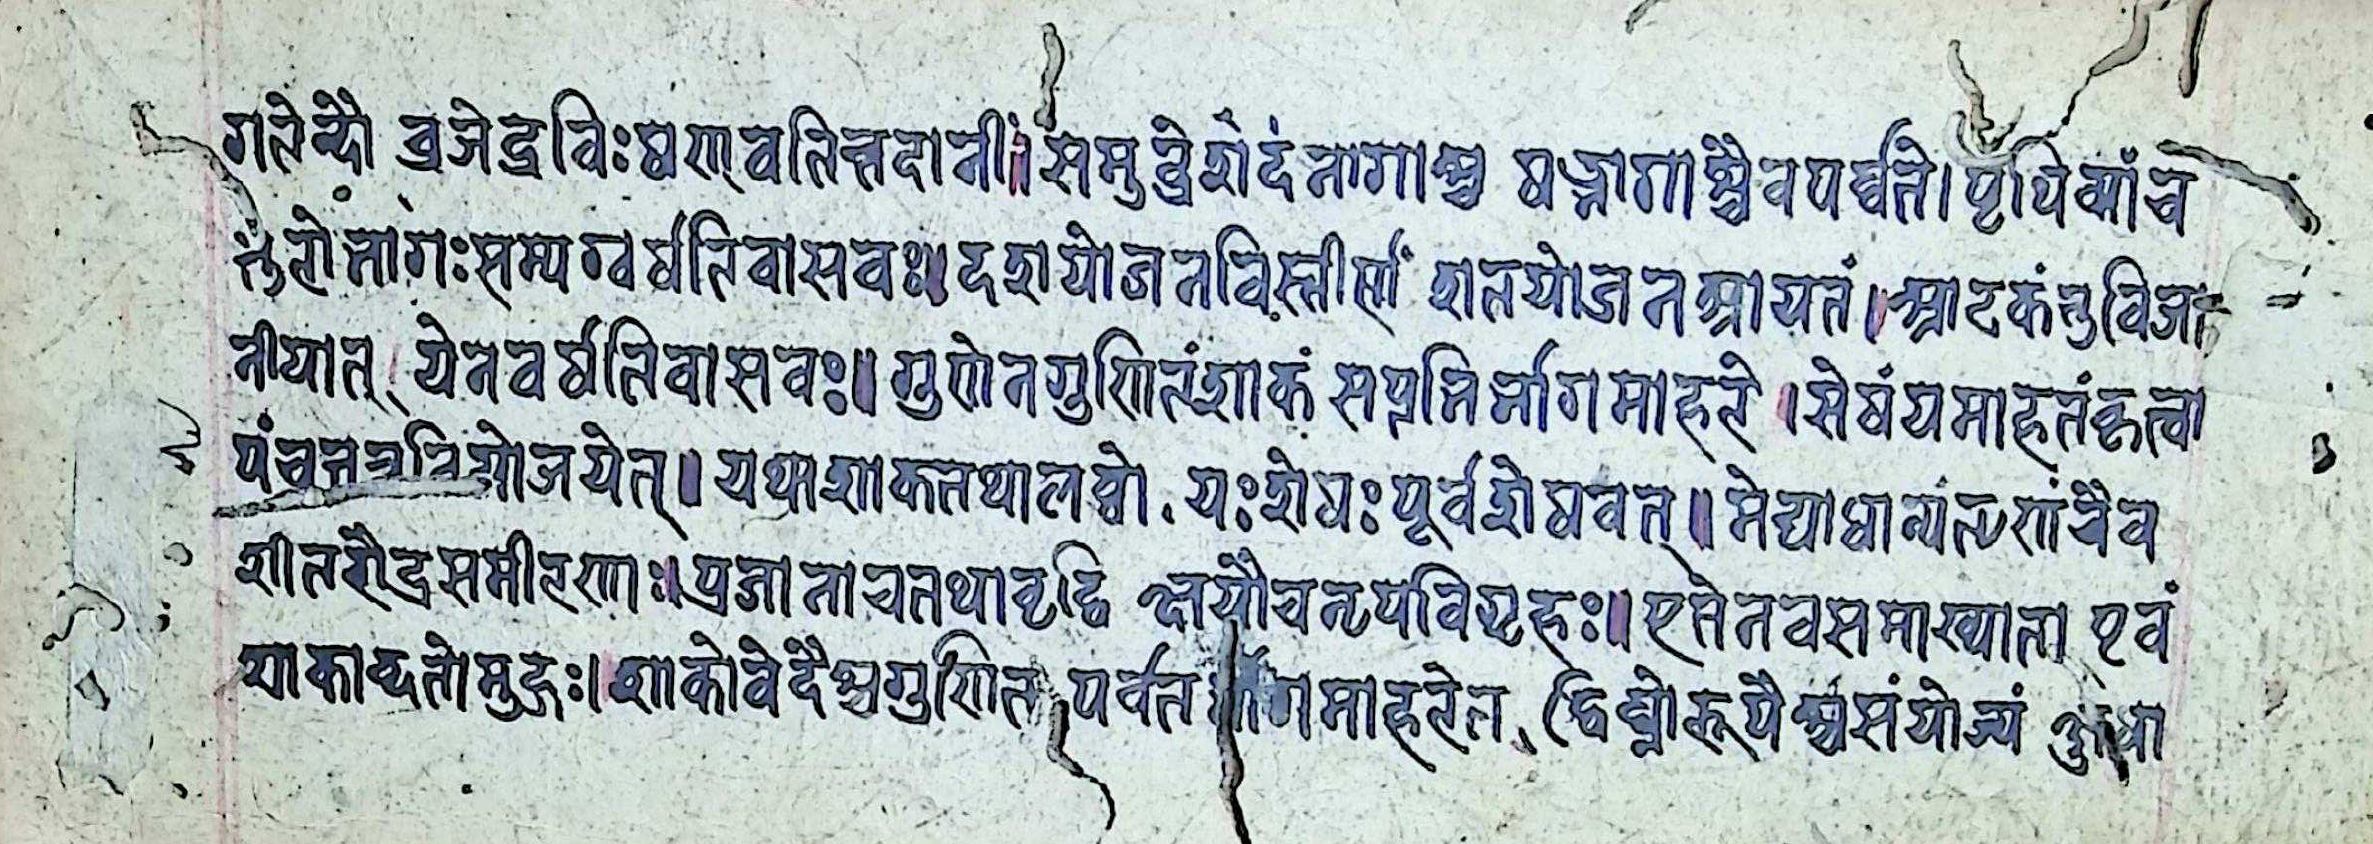 गतेन्दौ व्रजेद्रविः षण्णवतिस्तदानीं॥ समुद्रे शेदं नागाश्च षड्भागाश्चैव पर्व्वते। पृथिव्यां च
तुरो भागः सम्यग्वर्षति वासवः॥ दशयोजनविस्तीर्णं शतयोजनम्रायतं। आटकं तु विजा
नीयात् येन वर्षति वासवः॥ गुणेन गुणितं शाकं सप्तभिर्भागमाहरेत्। शेषं यमाहतं कृत्वा
पंच तत्र नियोजयेत्॥ यथा शाक तथा लब्धो यः शेषः पूर्वशेषवत्॥ मेघाधान्यंतृणं चैव
शीतरौद्रसमीरणाः॥ प्रजानाच तथा वृद्धि क्षयौ च नृपविग्रहः॥ एते नव समाख्याता एवं
शाकाब्दतो मुहुः॥ शाको वेदैश्च गुणित पर्वत भागमाहरेत् द्विघ्नो रूपैश्च संयोज्यं क्षुधा